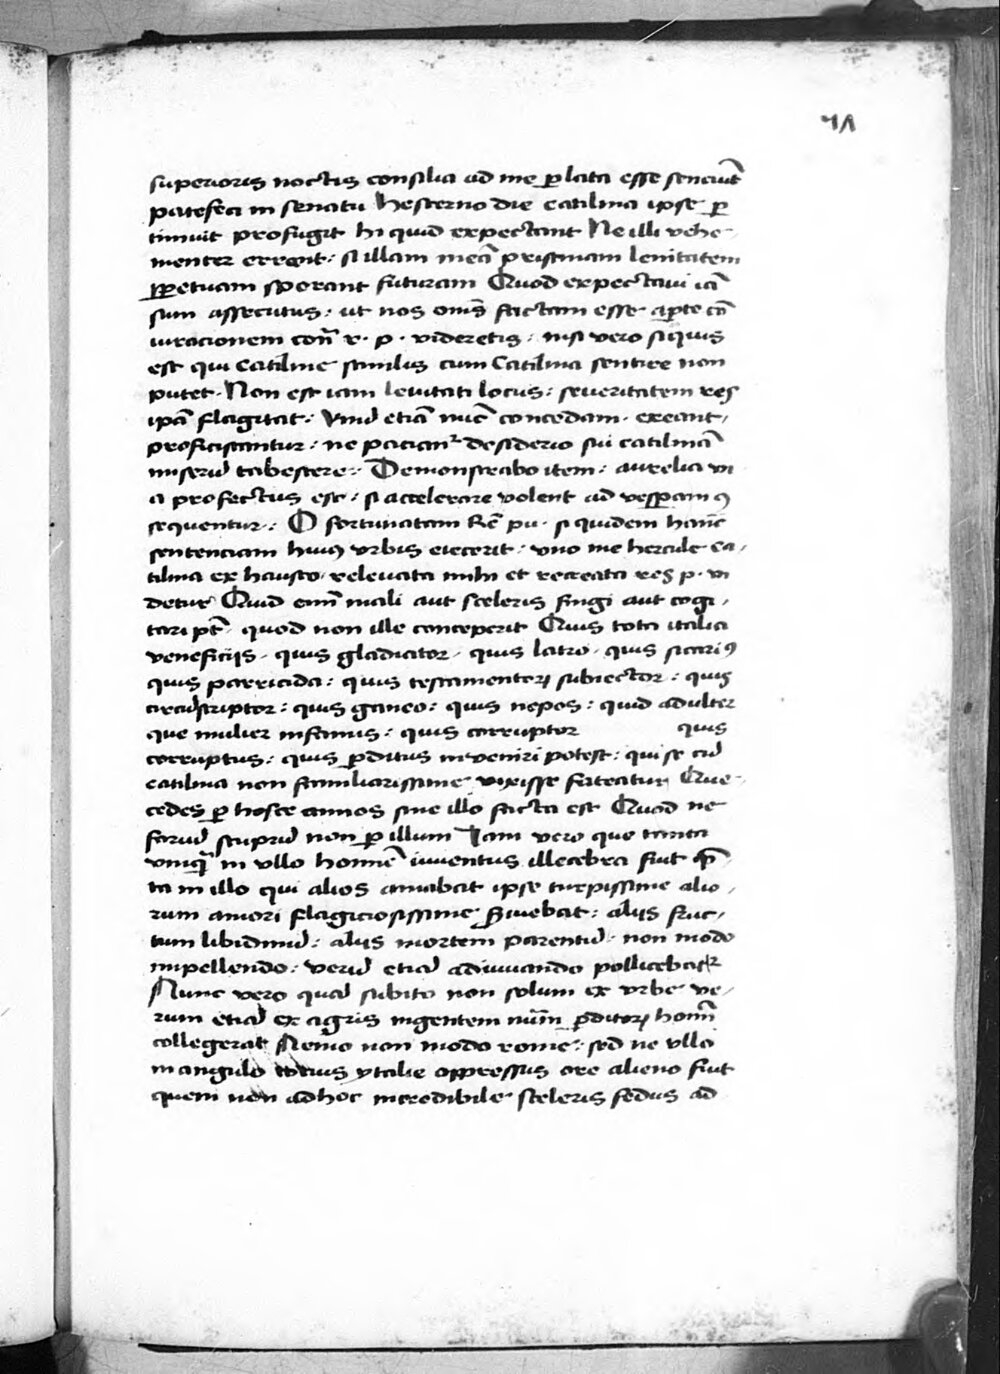 41
superioris noctis consilia ad me ꝑlata esse senciūt
patefeci in senatu Hesterno die catilina ipse ꝑ
timuit profugit hi quid expectant Ne illi vehe-
menter errant: si illam meā pristinam lenitatem
ꝑpetuam sperant futuram Quod expectavi iā
sum assecutus: ut nos om̄s factam esse aꝑte cō
iuracionem con̄ r. p. videretis: nisi vero siquis
est qui Catiline similis cum Catilina sentire non
putet. Non est iam levitati locus: severitatem res
ipā flagitat: Vnū etiā nūc concedam. exeant,
proficiscantur: ne pacian̄t desiderio sui catilinā
miserū tabescere: Demonstrabo iter: aurelia vi
a profectus est: si accelerare volent ad vesꝑam ꝯ
sequentur: O fortunatam Rē pu. si quidem hanc
sentenciam huiꝰ vrbis eiecerit: vno me hercule ca-
tilina exhausto. relevata mihi et recreata res p. vi
detur Quid enī mali aut sceleris fingi aut cogi-
tari pt̄. quod non ille conceperit Quis tota italia
veneficiis. quis gladiator. quis latro. quis sicariꝰ
quis parricida: quis testamentoꝝ subiector: quis
circūscriptor: quis ganeo: quis nepos: quid adulter
que mulier infamis: quis corruptor quis
corruptus: quis ꝑditus inveniri potest: qui se cū
catilina non familiarissime vixisse fateatur Que
cedes ꝑ hosce annos sine illo facta est Quod ne
fariū stuprū non ꝑ illum Iam vero que tanta
vniqū in vllo homē iuventus illecebra fuit q̄
ta in illo qui alios amabat ipse turpissime alio-
rum amori flagiciosissime ẜviebat: aliis fruc-
tum libidinū: aliis mortem parentū. non modo
impellendo: verū etiā adiuvando pollicebat̄
Nunc vero quā subito non solum ex vrbe ve-
rum etiā ex agris ingentem nūm ꝑditoꝝ homī
collegerat Nemo non modo rome: sed ne vllo
in angulo totius ytalie oppressus ere alieno fuit
quem non adhoc incredibile sceleris fedus ad